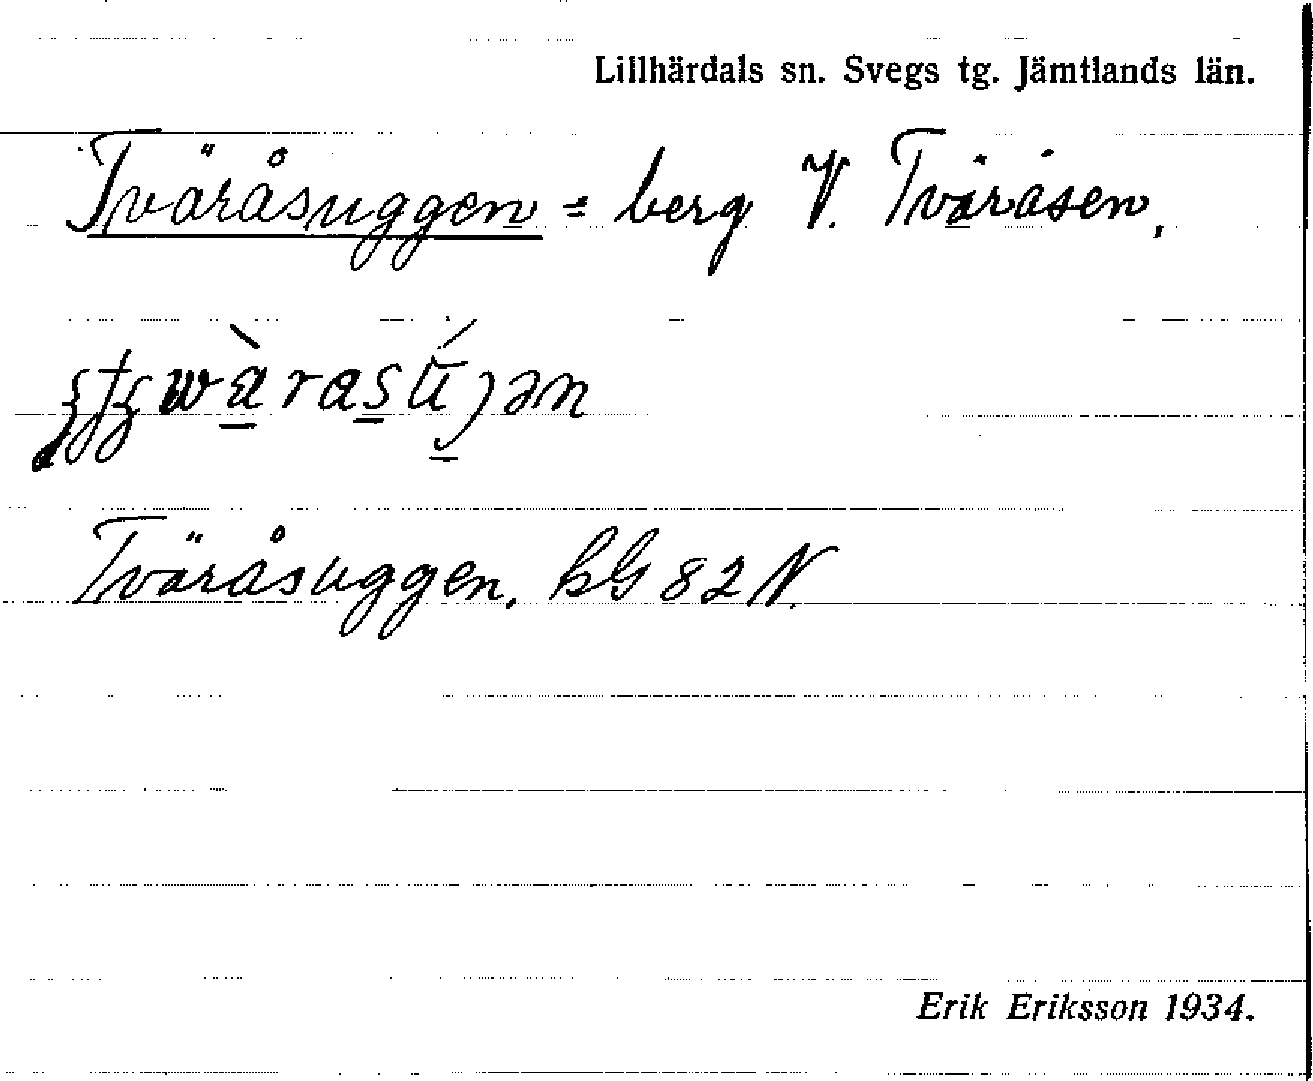 Lillhärdals sn. Svegs tg. Jämtlands län.
Tväråsuggen = berg V. Tväråsen,
Tväråsuggen. bG 82 N.
Erik Eriksson 1934.